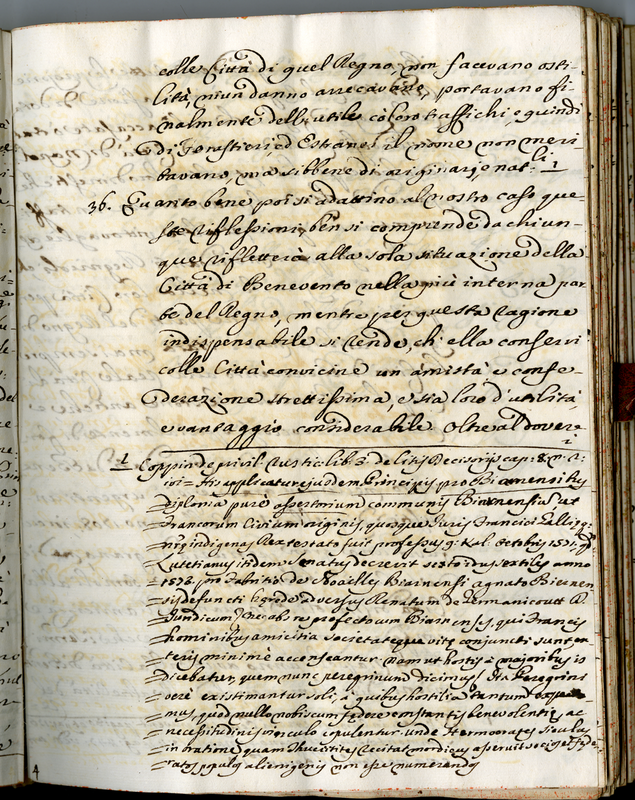 colle Città di quel Regno, non facevano osti-
lità, niun danno arrecavano, portavano fi-
nalmente dell'utile co' loro traffichi, e quindi
di Forastieri, ed Estranei il nome non meri-
tavano, ma sibbene di originarj nat:li 1
36. Quanto bene poi si adattino al nostro caso que-
ste riflessioni, ben si comprende da chiun-
que rifletterà alla sola situazione della
Città di Benevento nella più interna par-
te del Regno, mentre per questa ragione
indispensabile si rende, ch'ella conservi
colle Città convicine un amistà e confe-
derazione strettissima, e sia loro d'utilità,
e vantaggio considerabile Oltre al dovere
1 Coppin de privil. Rustic: lib. 3. de Litis Decisoriis cap: 8. n. 2:
ibi = His applicature jusdem Principis pro Biarnensibus
= diploma puré assertorium communis Biarnensiu ut
= Francorum Civium originis, quosque Juris Francici
= indigenas Rex testato fuit professus 9. Kal. Octobris 1571.
= Lutetianus itidem Senatus decrevit sexto idus sextiles anno
= 1573. pro Fabritio de Noailles Biarnensi agnato Biarnen-
= sis defuncti herede adversus Renatum de
= Jundicum Ne ab re profecto cum Biarnenses, qui Francis
= hominibus amicitia societateque vite conjuncti sunt, ex-
= teris minimè accenseantur. nam ut hostis à majoribus is
= dicebatur, quem nunc peregrinum dicimus: Ita Peregrini
= verè existimantur soli, à quibus hostilia tantum
= mus, quod nullo nobiscum federe constantis benevolentie, ac
= necessitudinis vinculo copulentur. unde Hermocrates Siculus
= in oratione, quam Thucitites recitat mordicus asseruit socios et fede-
= ratos populos alienigenis non esse numerandos
4